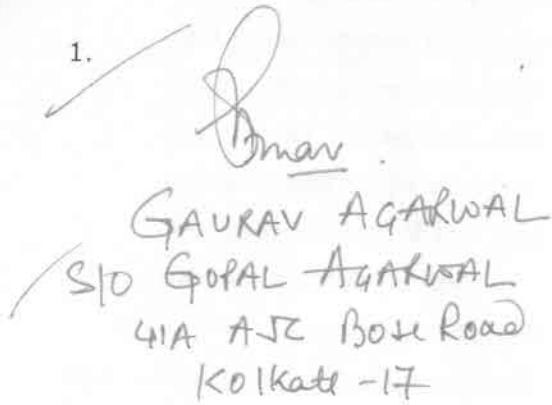 1.
GAURAV AGARWAL
S/O GOPAL AGARWAL
41A AJC Bose Road
Kolkate -17